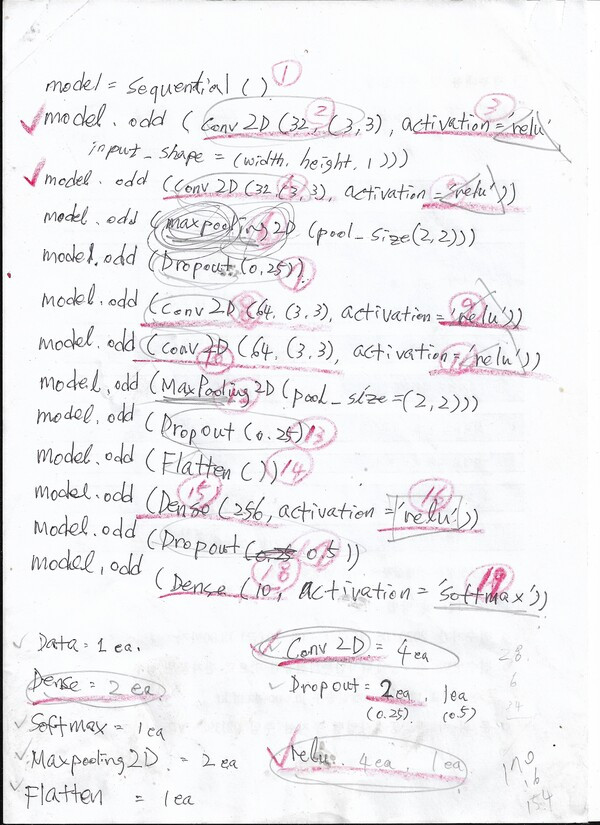 model = Sequential () 1
model. odd (Conv 2D (32, (3,3), activation = 'relu' 2 3
input_shape = (width, height, 1)))
model. odd (Conv 2D (32 (3,3), activation = 'relu'))
model. odd (maxpooling 2D (pool_size(2,2)))
model. odd (Dropout (0.25))
model. odd (Conv 2D (64, (3,3), activation = 'relu')) 8 9
model. odd (Conv 2D (64, (3,3), activation = 'relu')) 10 11
model. odd (MaxPooling 2D (pool_size = (2,2)))
model. odd (Dropout (0.25) 13
model. odd (Flatten ()) 14
model. odd (Dense (256, activation = 'relu')) 15 16
model. odd (Dropout (0.5))
model, odd (Dense (10, activation = 'softmax')) 18 19
Data = 1 ea.
Conv 2D = 4 ea
28
Dense = 2 ea
Dropout = 2 ea 1 ea
6
(0.25) (0.5)
24
Softmax = 1 ea
Maxpooling 2D = 2 ea
relu. 4 ea. 1 ea
Flatten = 1 ea